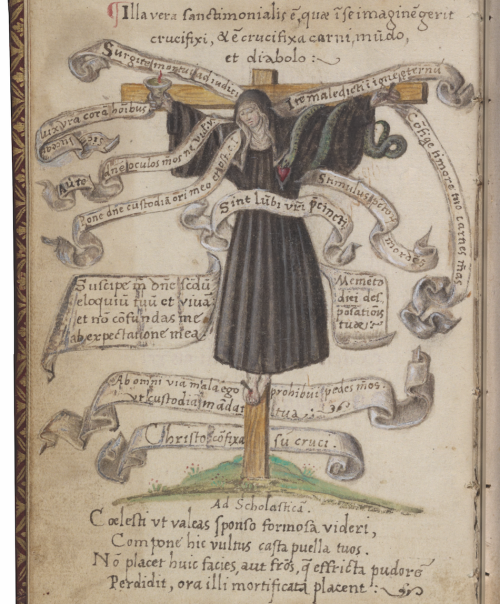 ¶Illa vera sanctimonialis ẽ, quæ ĩ se imaginẽ gerit
crucifixi, & ẽ crucifixa carni, mũdo,
et diabolo :~
Surgite mortui ad iudiciũ
Ite maledicti ĩ ignẽ eternũ
luceat
lux vrã corã hõibus
Auerte
ne oculos mos ne videãt
Pone dñe custodiã ori meo
Sint lũbi vrĩ p̃cincti
Stimulus
mordet
Cõfige timore tuo carnes mas
Suscipe m̃ dñe scđũ
eloquiũ tuũ et viuã
et nõ cõfundas me
ab expectatione mea.
Memẽto
diei des
põsatiõis
tue
Ab omni via mala ego prohibui pedes mõs.
vt custodiã mãdata tua
Christo cõfixa sũ cruci.
Ad Scholasticã.
Cœlesti vt valeas sponso formosa videri,
Compone hic vultus casta puella tuos.
Nõ placet huic facies, aut frõs, q̃ effricta pudorẽ
Perdidit, ora illi mortificata placent :~